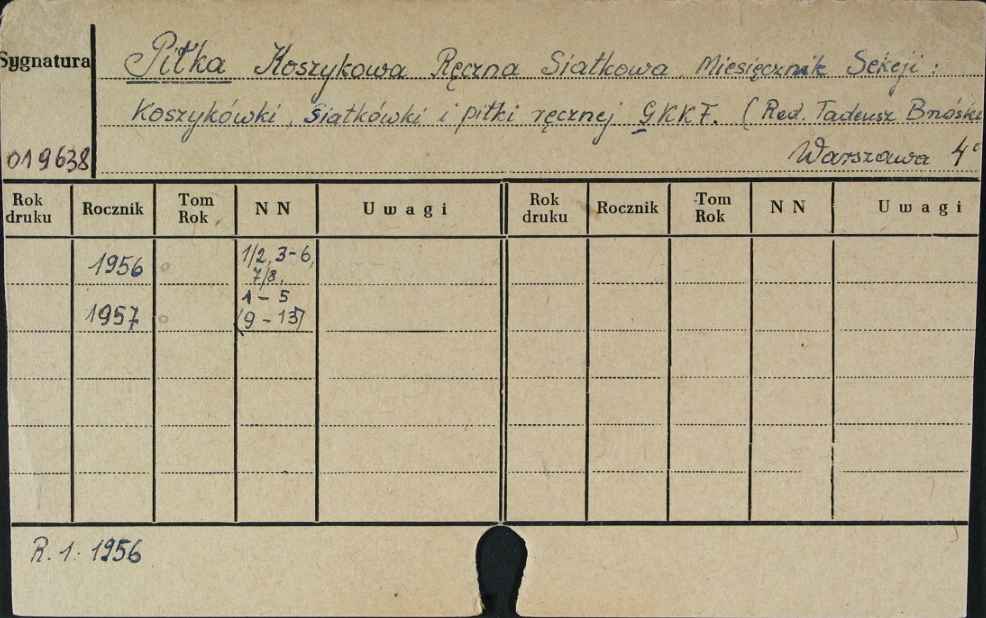 Sygnatura
Piłka Koszykowa Ręczna Siatkowa. Miesięcznik Sekcji:
Koszykówki, siatkówki i piłki ręcznej GKKF. (Red. Tadeusz
019638
Warszawa 4°
Rok druku Rocznik Tom Rok N N Uwagi Rok druku Rocznik Tom Rok N N Uwagi
1956 1/2, 3-6,
7/8,
1 - 5
1957 (9 - 13)
R. 1. 1956